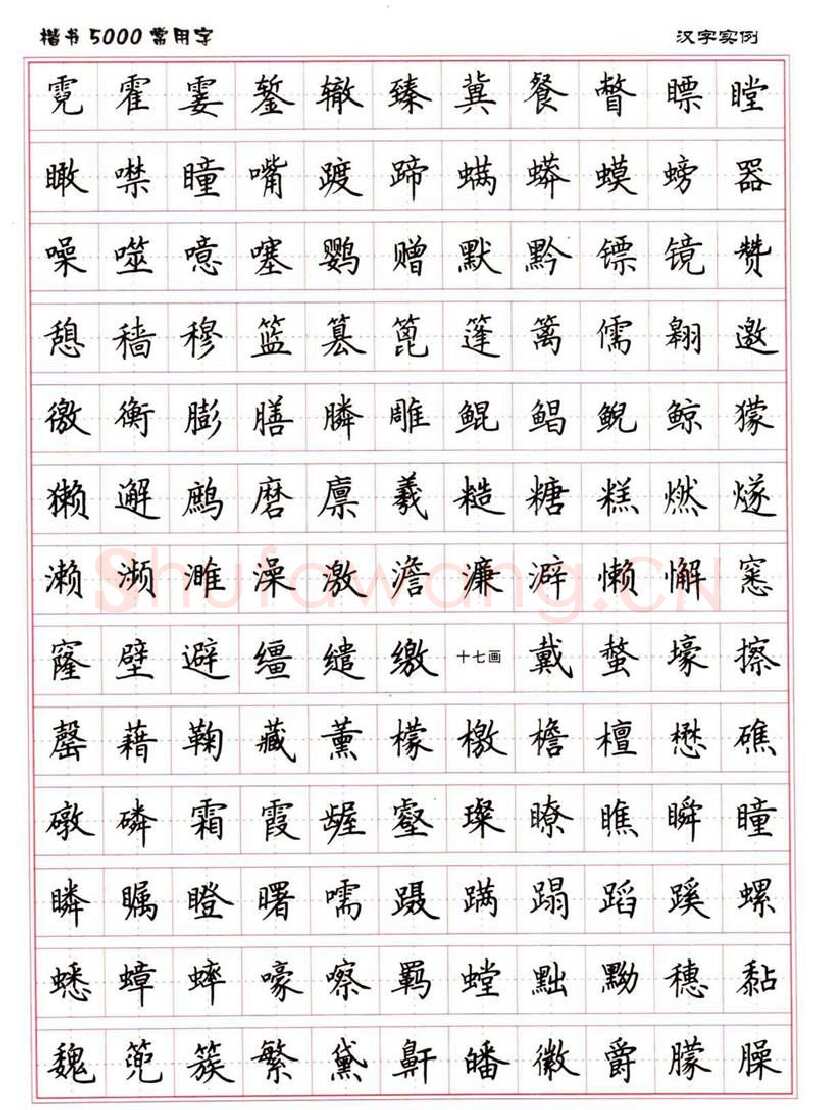 楷书5000常用字 汉字实例
霓霍霎錾辙臻冀餐瞥瞟瞠
瞰噤瞳嘴踱蹄螨蟒蟆螃器
噪噬噫噻鹦赠默黔镖镜赞
憩穑穆篮篡篦篷篱儒翱邀
徼衡膨膳膦雕鲲鲳鲵鲸獴
獭邂鹧磨廪羲糙糖糕燃燧
濑濒濉澡激澹濂澼懒懈窸
窿壁避缰缱缴十七画戴蹩壕擦
罄藉鞠藏薰檬檄檐檀懋礁
礅磷霜霞龌壑璨瞭瞧瞬瞳
瞵瞩瞪曙嚅蹑蹒蹋蹈蹊螺
蟋蟑蟀嚎嚓羁螳黜黝穗黏
魏篼簇繁黛鼾皤徽爵朦臊
Shufawang.CN